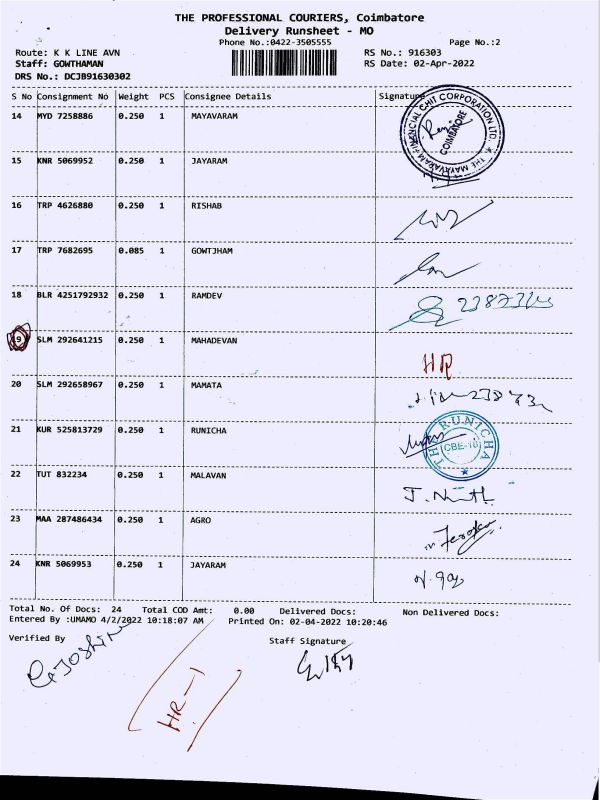 THE PROFESSIONAL COURIERS, Coimbatore
Delivery Runsheet - MO
Phone No.:0422-3505555 Page No.:2
Route: K K LINE AVN RS No.: 916303
Staff: GOWTHAMAN RS Date: 02-Apr-2022
DRS No.: DCJB91630302
S No Consignment No Weight PCS Consignee Details Signature
14 MYD 7258886 0.250 1 MAYAVARAM
THE MAYAVARAM FINANCIAL CHIT CORPORATION LTD. COIMBATORE
15 KNR 5069952 0.250 1 JAYARAM
16 TRP 4626880 0.250 1 RISHAB
17 TRP 7682695 0.085 1 GOWTJHAM
18 BLR 4251792932 0.250 1 RAMDEV
19 SLM 292641215 0.250 1 MAHADEVAN HR
20 SLM 292658967 0.250 1 MAMATA
21 KUR 525813729 0.250 1 RUNICHA
THE RUNICHA
CBE-18
22 TUT 832234 0.250 1 MALAVAN
23 MAA 287486434 0.250 1 AGRO
24 KNR 5069953 0.250 1 JAYARAM
Total No. Of Docs: 24 Total COD Amt: 0.00 Delivered Docs: Non Delivered Docs:
Entered By :UMAMO 4/2/2022 10:18:07 AM Printed On: 02-04-2022 10:20:46
Verified By Staff Signature
HR-1